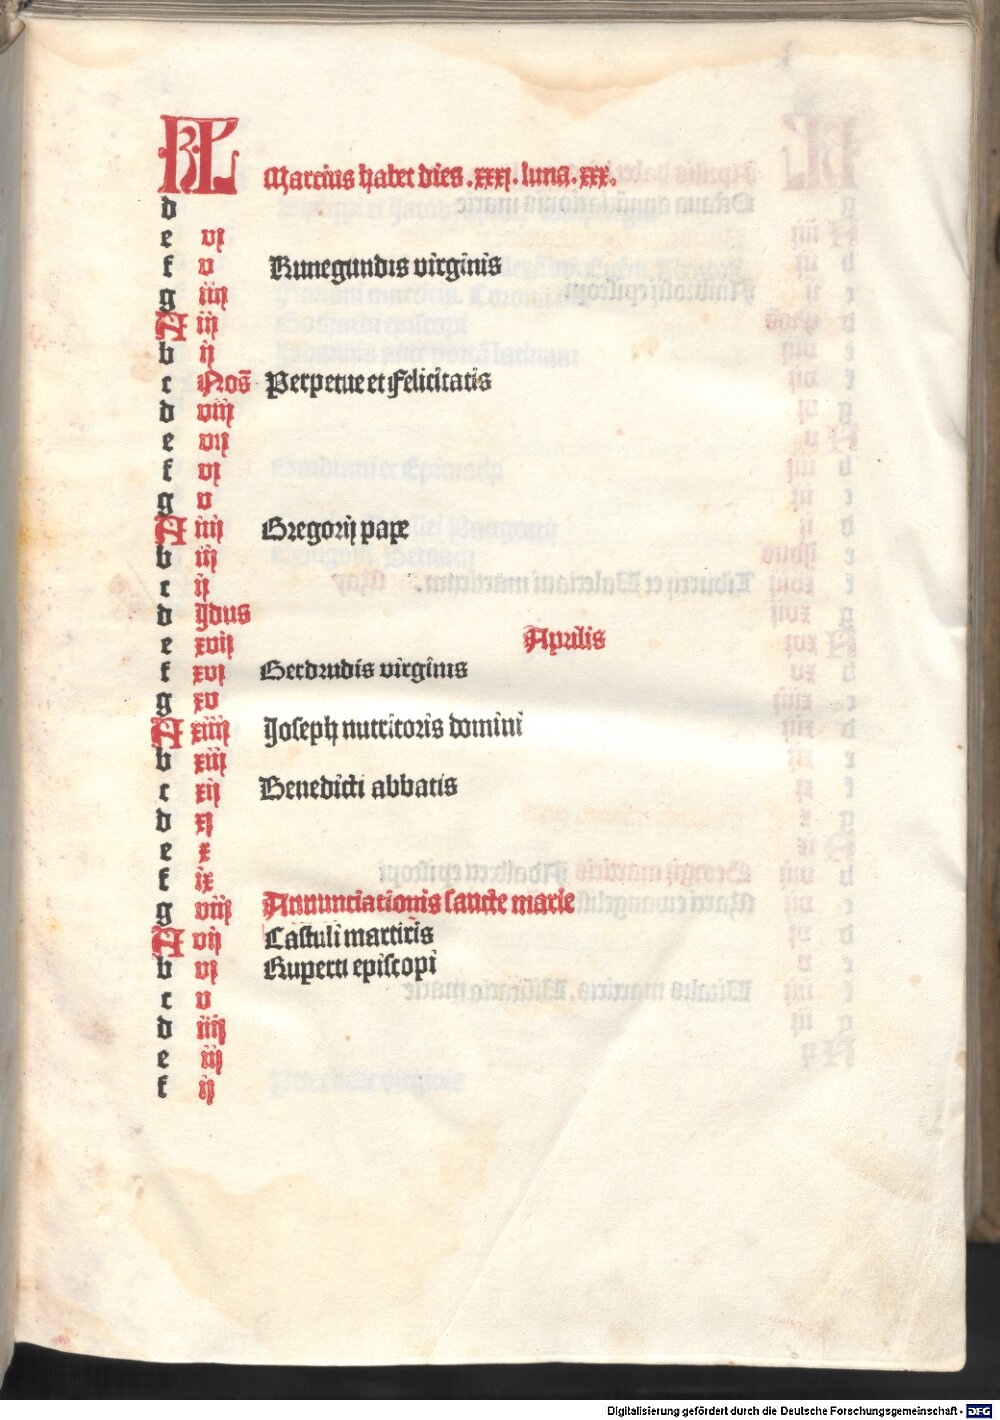 KL Marcius habet dies .xxxj. luna .xxx.
d
e vj
f v Kunegundis virginis
g iiij
A iij
b ij
c Nos̄ Perpetue et Felicitatis
d viij
e vij
f vj
g v
A iiij Gregorij pape
b iij
c ij
d Jdus
e xvij Aprilis
f xvj Gerdrudis virginis
g xv
A xiiij Joseph nutritoris domini
b xiij
c xij Benedicti abbatis
d xj
e x
f ix
g viij Annunciationis sancte marie
A vij Castuli martiris
b vj Ruperti episcopi
c v
d iiij
e iij
f ij
Digitalisierung gefördert durch die Deutsche Forschungsgemeinschaft - DFG